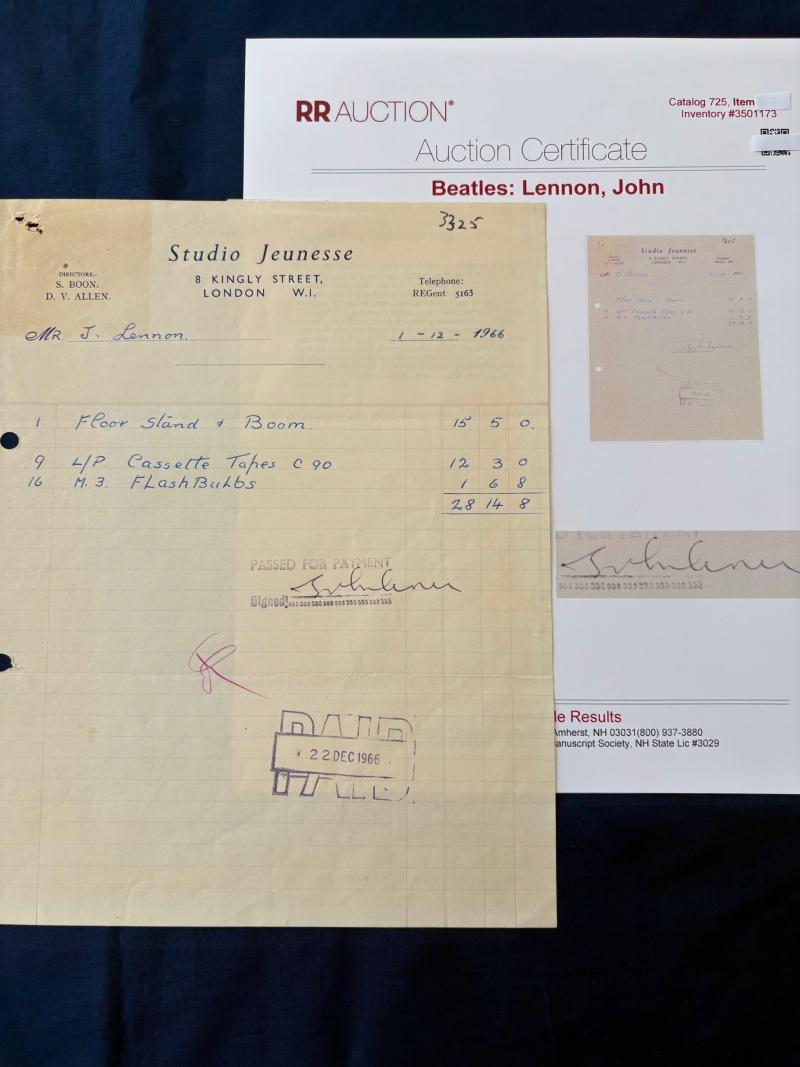 RR AUCTION®
Catalog 725, Item
Inventory #3501173
Auction Certificate
Beatles: Lennon, John
3325
Studio Jeunesse
8 KINGLY STREET,
LONDON W.I.
DIRECTORS:-
S. BOON.
D. V. ALLEN.
Telephone:
REGent 5163
MR. J. Lennon.
1 - 12 - 1966
1 Floor Stand & Boom. 15 5 0.
9 L/P. Cassette Tapes C 90 12 3 0
16 M.3. FLashBulbs 1 6 8
28 14 8
PASSED FOR PAYMENT
Signed
John Lennon
PAID
22 DEC 1966
Studio Jeunesse
8 KINGLY STREET,
LONDON W.I.
John Lennon
le Results
Amherst, NH 03031(800) 937-3880
anuscript Society, NH State Lic #3029